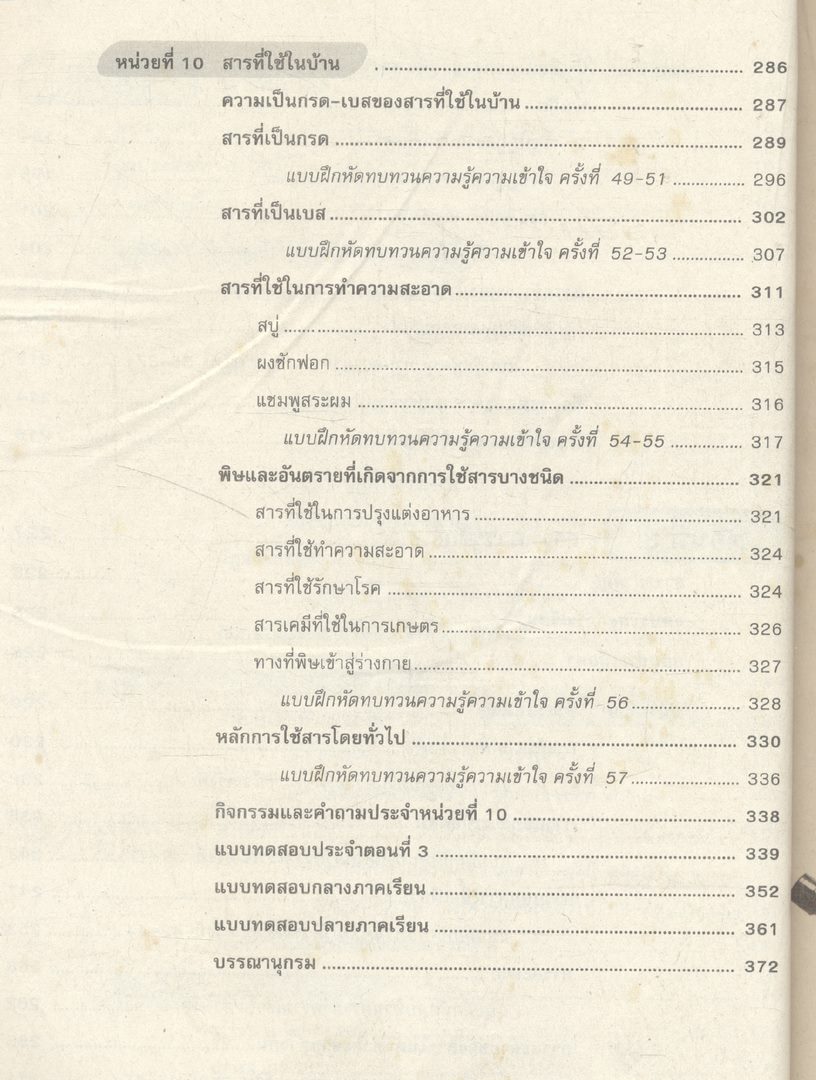 หน่วยที่ 10 สารที่ใช้ในบ้าน ........ 286
ความเป็นกรด-เบสของสารที่ใช้ในบ้าน ........ 287
สารที่เป็นกรด ........ 289
แบบฝึกหัดทบทวนความรู้ความเข้าใจ ครั้งที่ 49-51 ........ 296
สารที่เป็นเบส ........ 302
แบบฝึกหัดทบทวนความรู้ความเข้าใจ ครั้งที่ 52-53 ........ 307
สารที่ใช้ในการทำความสะอาด ........ 311
สบู่ ........ 313
ผงซักฟอก ........ 315
แชมพูสระผม ........ 316
แบบฝึกหัดทบทวนความรู้ความเข้าใจ ครั้งที่ 54-55 ........ 317
พิษและอันตรายที่เกิดจากการใช้สารบางชนิด ........ 321
สารที่ใช้ในการปรุงแต่งอาหาร ........ 321
สารที่ใช้ทำความสะอาด ........ 324
สารที่ใช้รักษาโรค ........ 324
สารเคมีที่ใช้ในการเกษตร ........ 326
ทางที่พิษเข้าสู่ร่างกาย ........ 327
แบบฝึกหัดทบทวนความรู้ความเข้าใจ ครั้งที่ 56 ........ 328
หลักการใช้สารโดยทั่วไป ........ 330
แบบฝึกหัดทบทวนความรู้ความเข้าใจ ครั้งที่ 57 ........ 336
กิจกรรมและคำถามประจำหน่วยที่ 10 ........ 338
แบบทดสอบประจำตอนที่ 3 ........ 339
แบบทดสอบกลางภาคเรียน ........ 352
แบบทดสอบปลายภาคเรียน ........ 361
บรรณานุกรม ........ 372